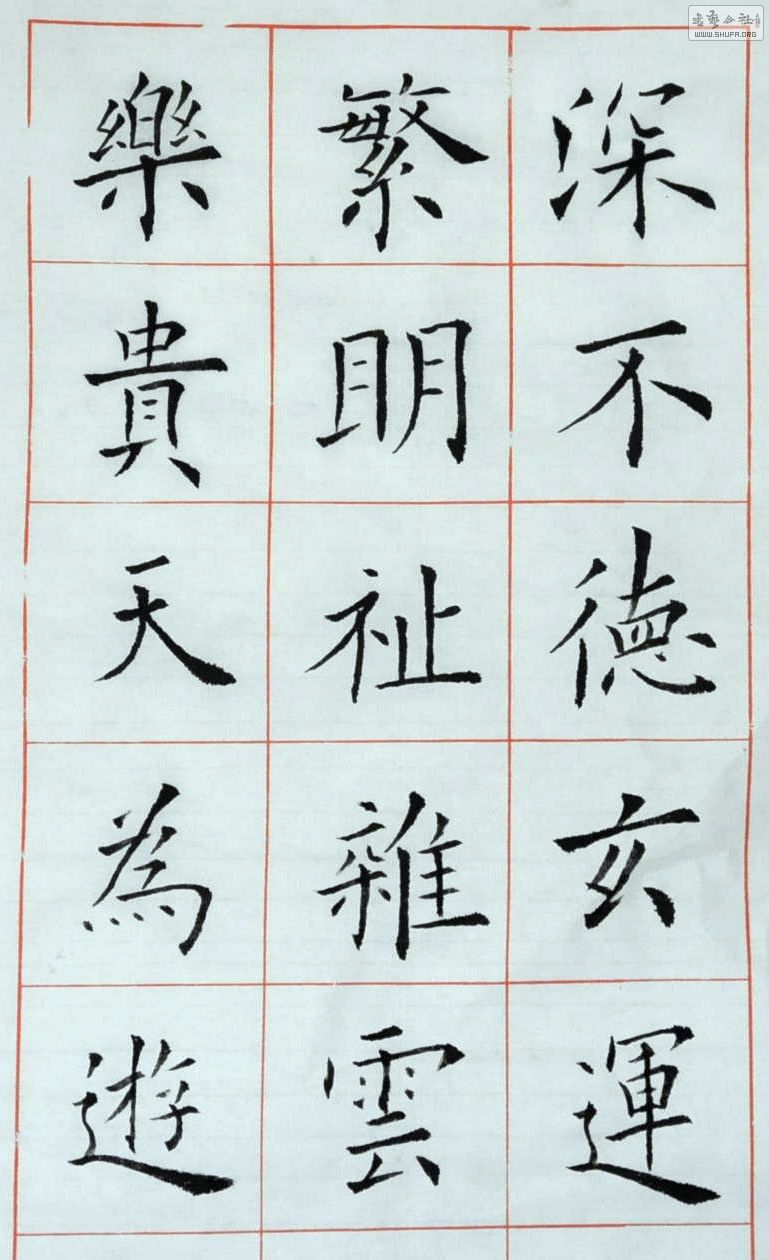 深不德玄運
繁明祉雜雲
樂貴天為遊
WWW.SHUFA.ORG